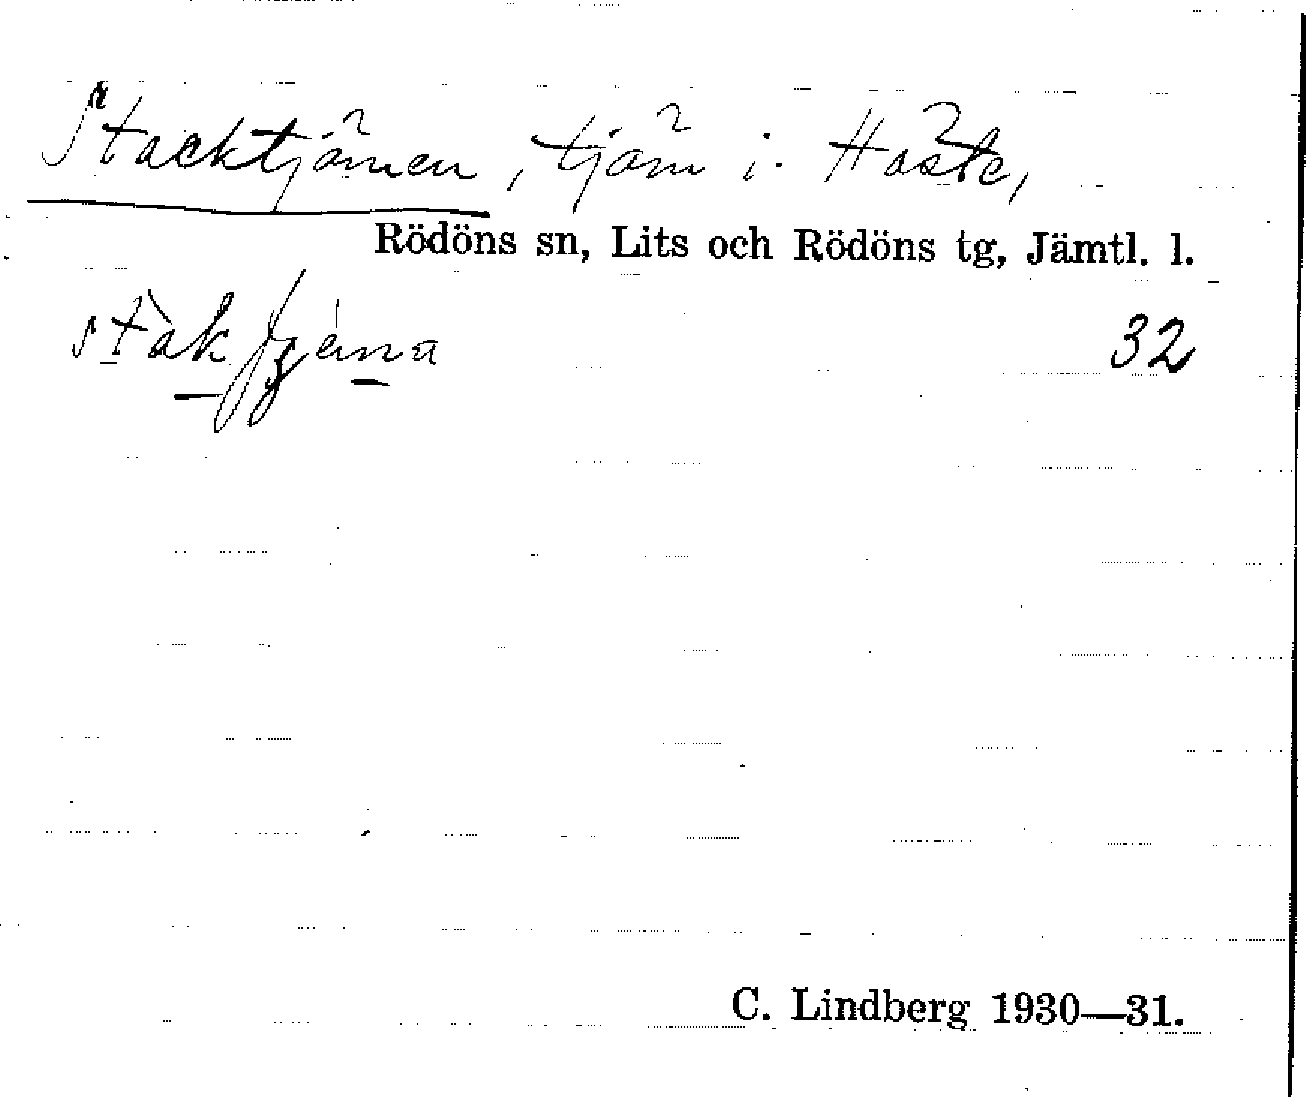 Stacktjärnen, tjärn i Håste,
Rödöns sn, Lits och Rödöns tg, Jämtl. l.
32
C. Lindberg 1930—31.